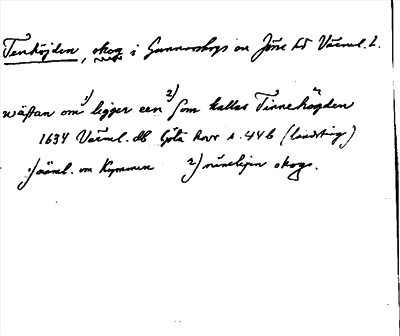 Tenhöjden, skog i Gunnarskogs sn Jösse hd Värml. l.
wästan om 1) ligger een 2) som kallas Tinnehögden
1634 Värml. db Göta hovr s. 446 (lindsting)
1) näml. om Kymmen 2) nämligen skogs.